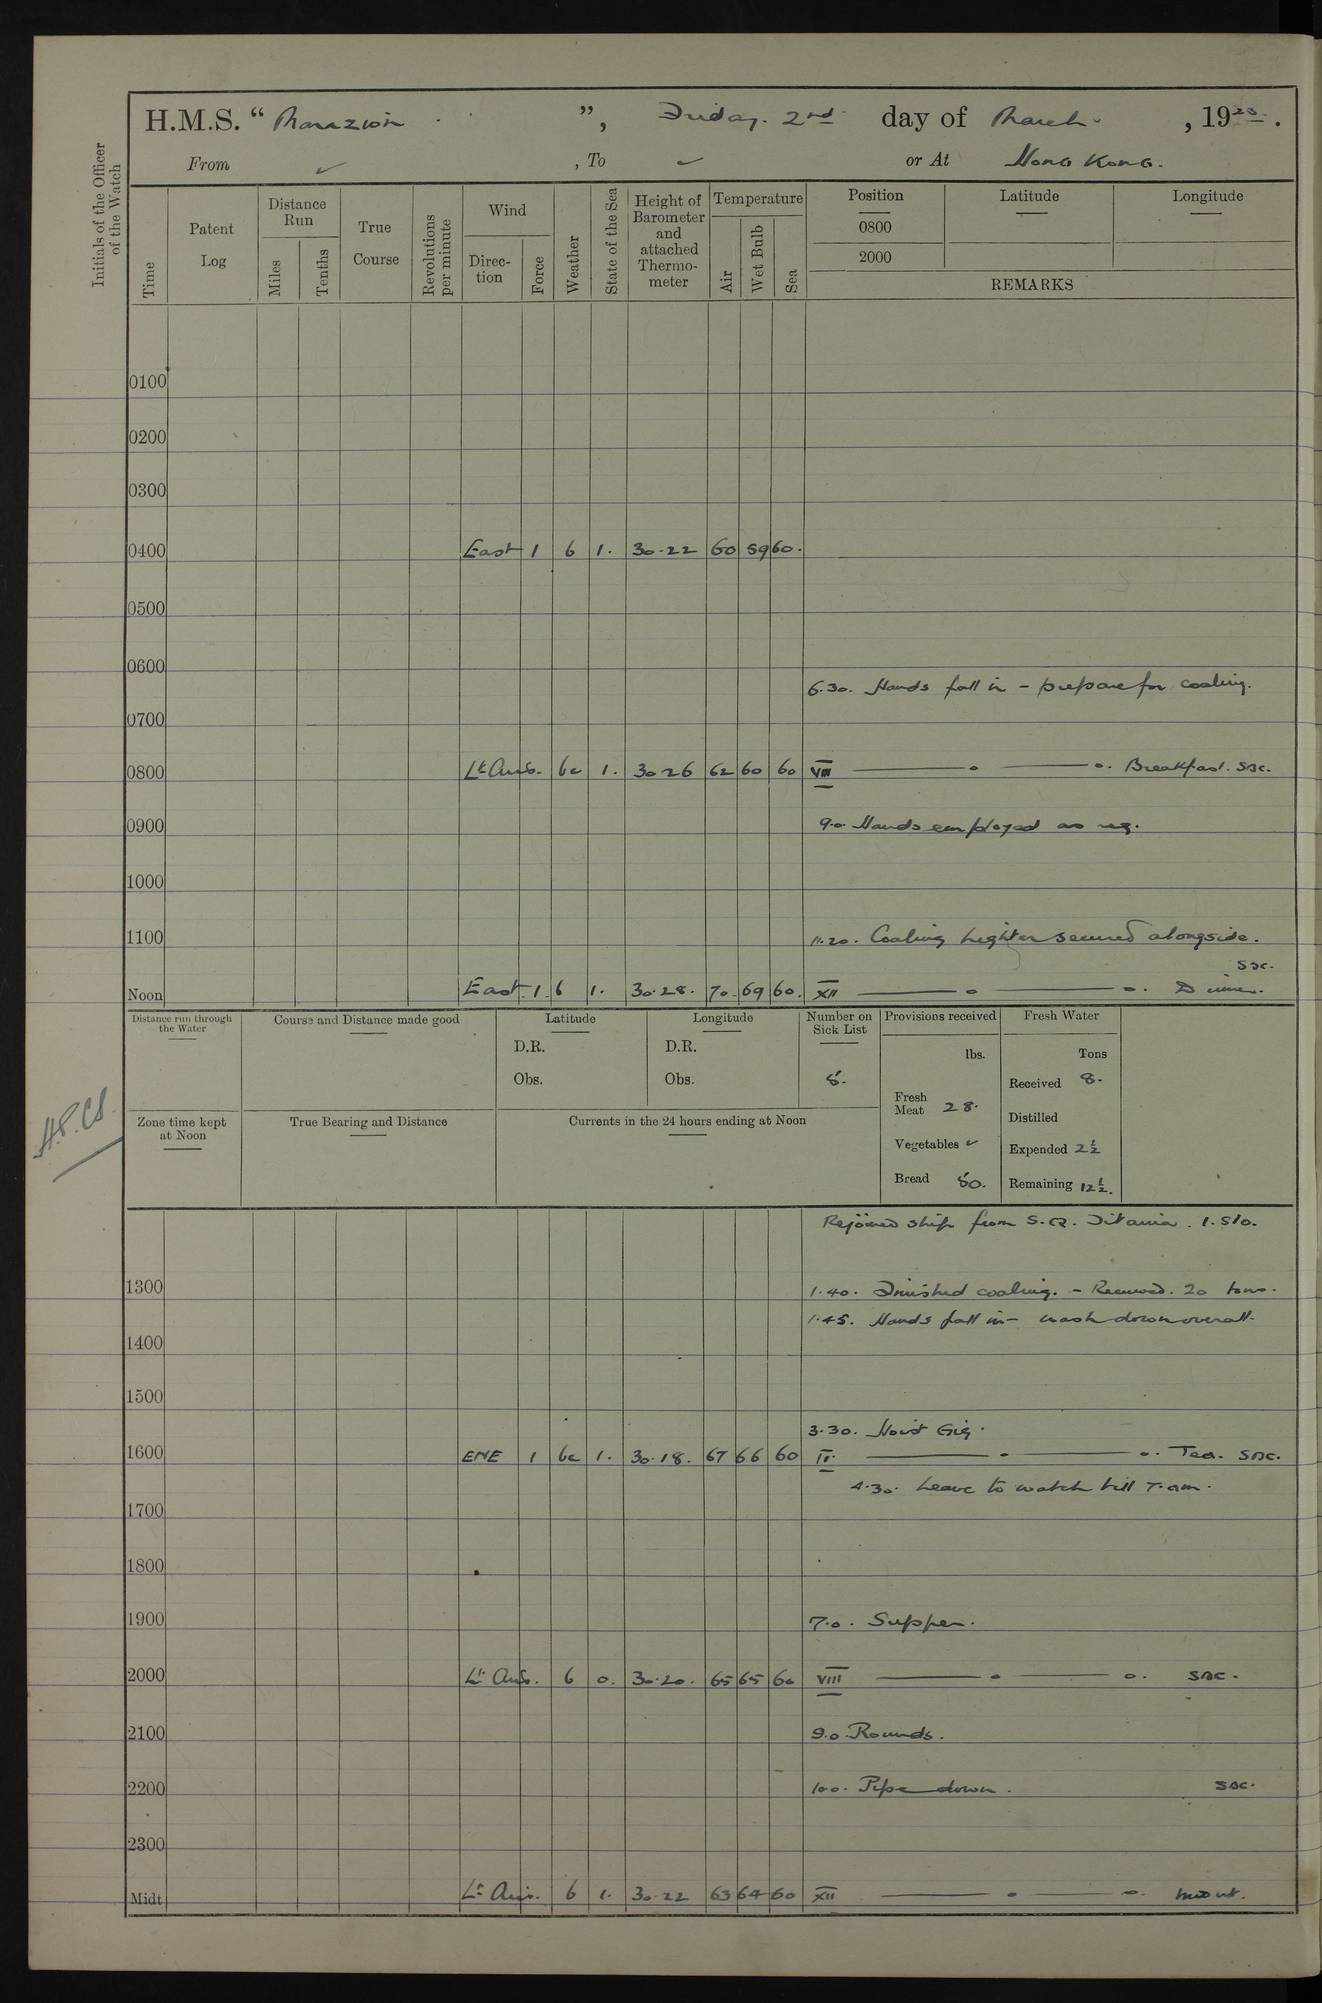 H.M.S. “ Marazion ”, Friday. 2nd day of March. , 1923.
From ✓ , To ✓ or At Hong Kong.
Initials of the Officer of the Watch
Time
Patent Log
Distance Run
Miles
Tenths
True Course
Revolutions per minute
Wind
Direc-tion
Force
Weather
State of the Sea
Height of Barometer and attached Thermo-meter
Temperature
Air
Wet Bulb
Sea
Position
Latitude
Longitude
0800
2000
REMARKS
0100
0200
0300
0400 East 1 b 1. 30.22 60 59 60.
0500
0600
6.30. Hands fall in - prepare for coaling.
0700
0800 Lt Airs. bc 1. 30.26 62 60 60 VIII ——o——o. Breakfast. SBC.
0900 9.0 Hands employed as req.
1000
1100 11.20. Coaling lighter secured alongside.
SBC.
Noon East. 1. b 1. 30.28. 70. 69 60. XII ——o——o. Dinner.
Distance run through the Water
Course and Distance made good
Latitude
D.R.
Obs.
Longitude
D.R.
Obs.
Number on Sick List
5.
Provisions received
lbs.
Fresh Meat 28.
Vegetables ✓
Bread 50.
Fresh Water
Tons
Received 8.
Distilled
Expended 2½
Remaining 12½.
Zone time kept at Noon
True Bearing and Distance
Currents in the 24 hours ending at Noon
Rejoined ship from S.Q. Titania. 1. Sto.
1300 1.40. Finished coaling. - Received. 20 tons.
1.45. Hands fall in - wash down overall.
1400
1500
3.30. Hoist Gig.
1600 ENE 1 bc 1. 30.18. 67 66 60 IV. ——o——o. Tea. SBC.
4.30. Leave to watch till 7.am.
1700
1800
1900 7.0. Supper.
2000 Lt. Airs. b 0. 30.20. 65 65 60 VIII ——o——o. SBC.
2100 9.0. Rounds.
2200 10.0. Pipe down. SBC.
2300
Midt Lt. Airs. b 1. 30.22 63 64 60 XII ——o——o.